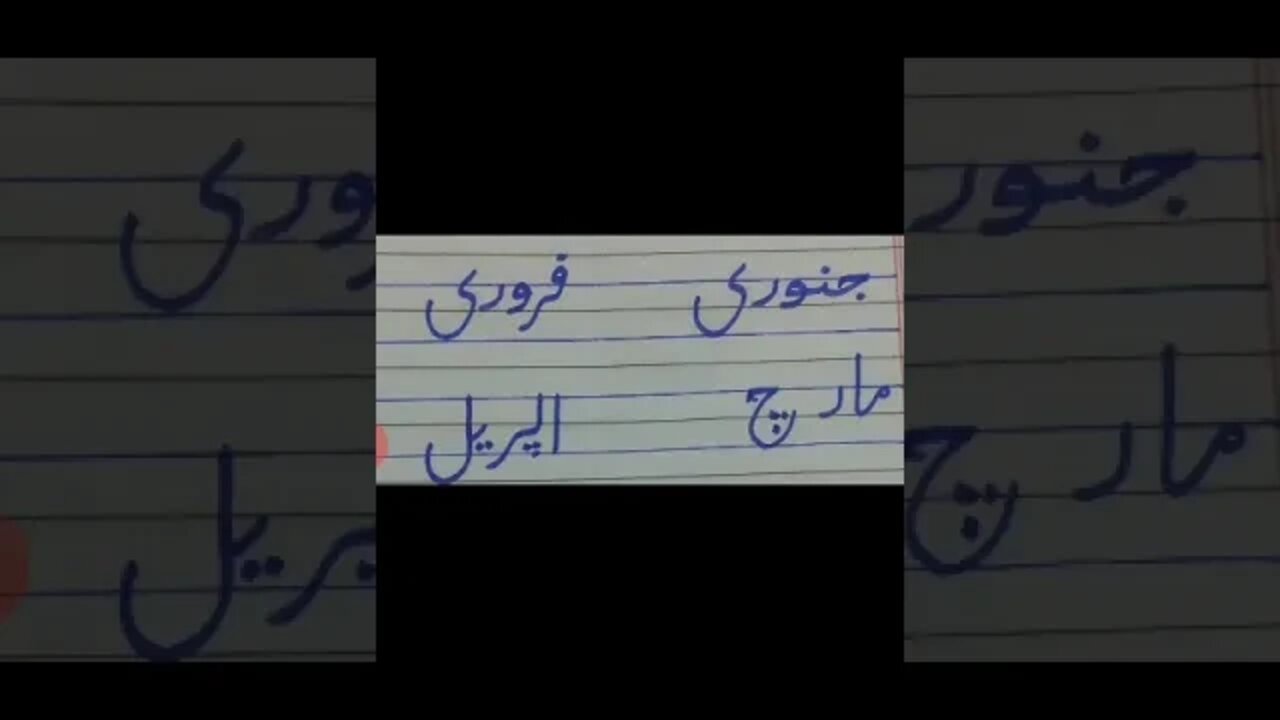 جنوری فروری
مارچ الپریل